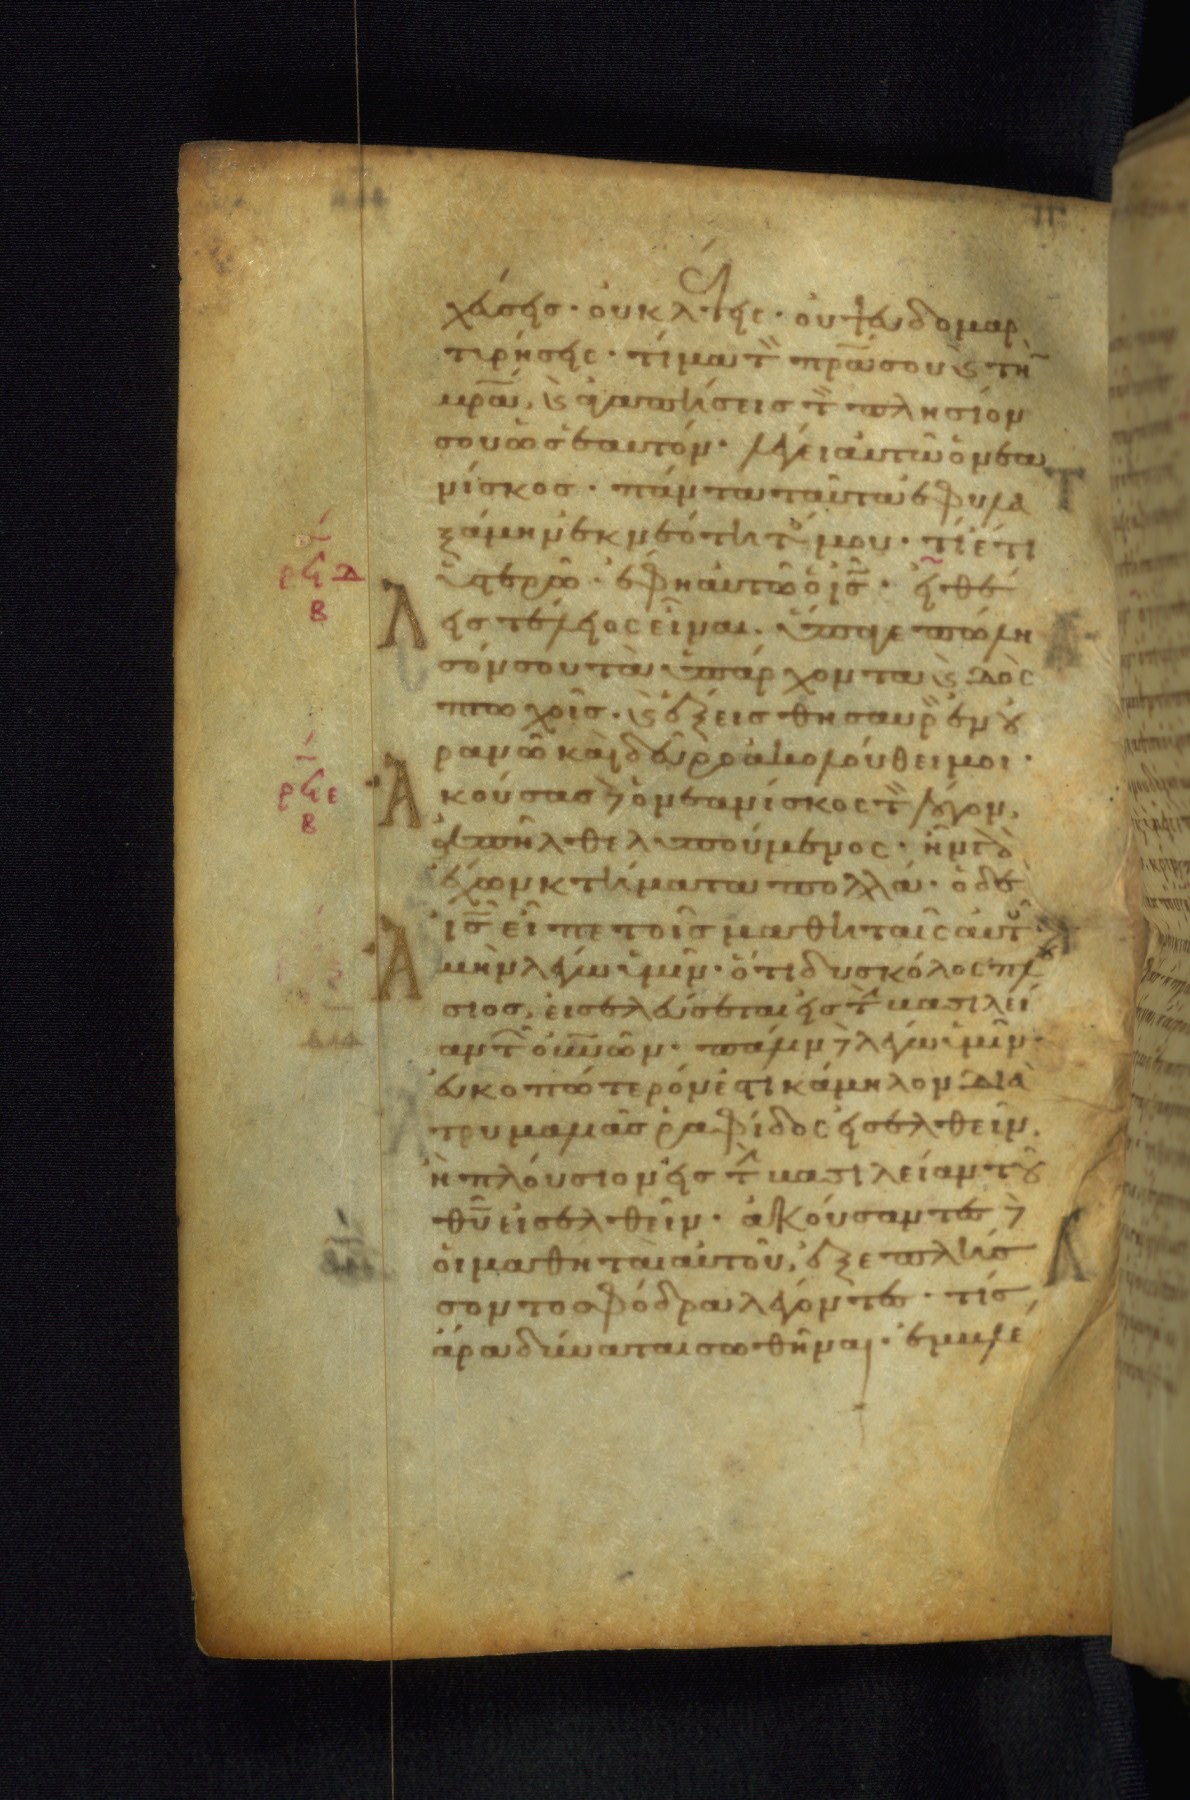 χεύσεις· οὐ κλέψεις· οὐ ψευδομαρ
τιρήσεις· τίμα τὸν πρᾱ σου ϗ τὴν
μρᾱ, ϗ ἀγαπήσεις τὸν πλησίον
σου ὡς ἑαυτόν· λέγει αὐτῶ ὁ νεα
νίσκος· πάντα ταῦτα ἐφυλα
ξάμην ἐκ νεότητός μου· τί ἔτι
ὑστερῶ· ἔφη αὐτῶ ὁ ις̄· εἰ θέ
Λ
εις τέλειος εἶναι, ὕπαγε πώλη
σόν σου τὰ ὑπάρχοντα ϗ δὸς
πτωχοῖς· ϗ ἕξεις θησαυρὸν ἐν οὐ
ρανῶ καὶ δεῦρο ἀκολούθει μοι·
Ἀ
κούσας δὲ ὁ νεανίσκος τὸν λόγον,
ἀπῆλθε λυπούμενος· ἦν γὰρ
ἔχων κτήματα πολλά· ὁ δὲ
ις̄ εἶπε τοῖς μαθηταῖς αὐτοῦ·
Ἀ
μὴν λέγω ὑμῖν· ὅτι δυσκόλος πλού
σιος, εἰσελεύσεται εἰς τὴν βασιλεί
αν τῶν οὐνῶν· πάλιν δὲ λέγω ὑμῖν·
εὐκοπώτερόν ἐστι κάμηλον διὰ
τρυμαλιᾶς ῥαφίδος εἰσελθεῖν,
ἢ πλούσιον εἰς τὴν βασιλείαν τοῦ
θῡ εἰσελθεῖν· ἀκούσαντες δὲ
οἱ μαθηταὶ αὐτοῦ, ἐξεπλήσ
σοντο σφόδρα λέγοντες· τίς
ἄρα δύναται σωθῆναι· ἐμβλέ
ρϟδ
β
ρϟε
β